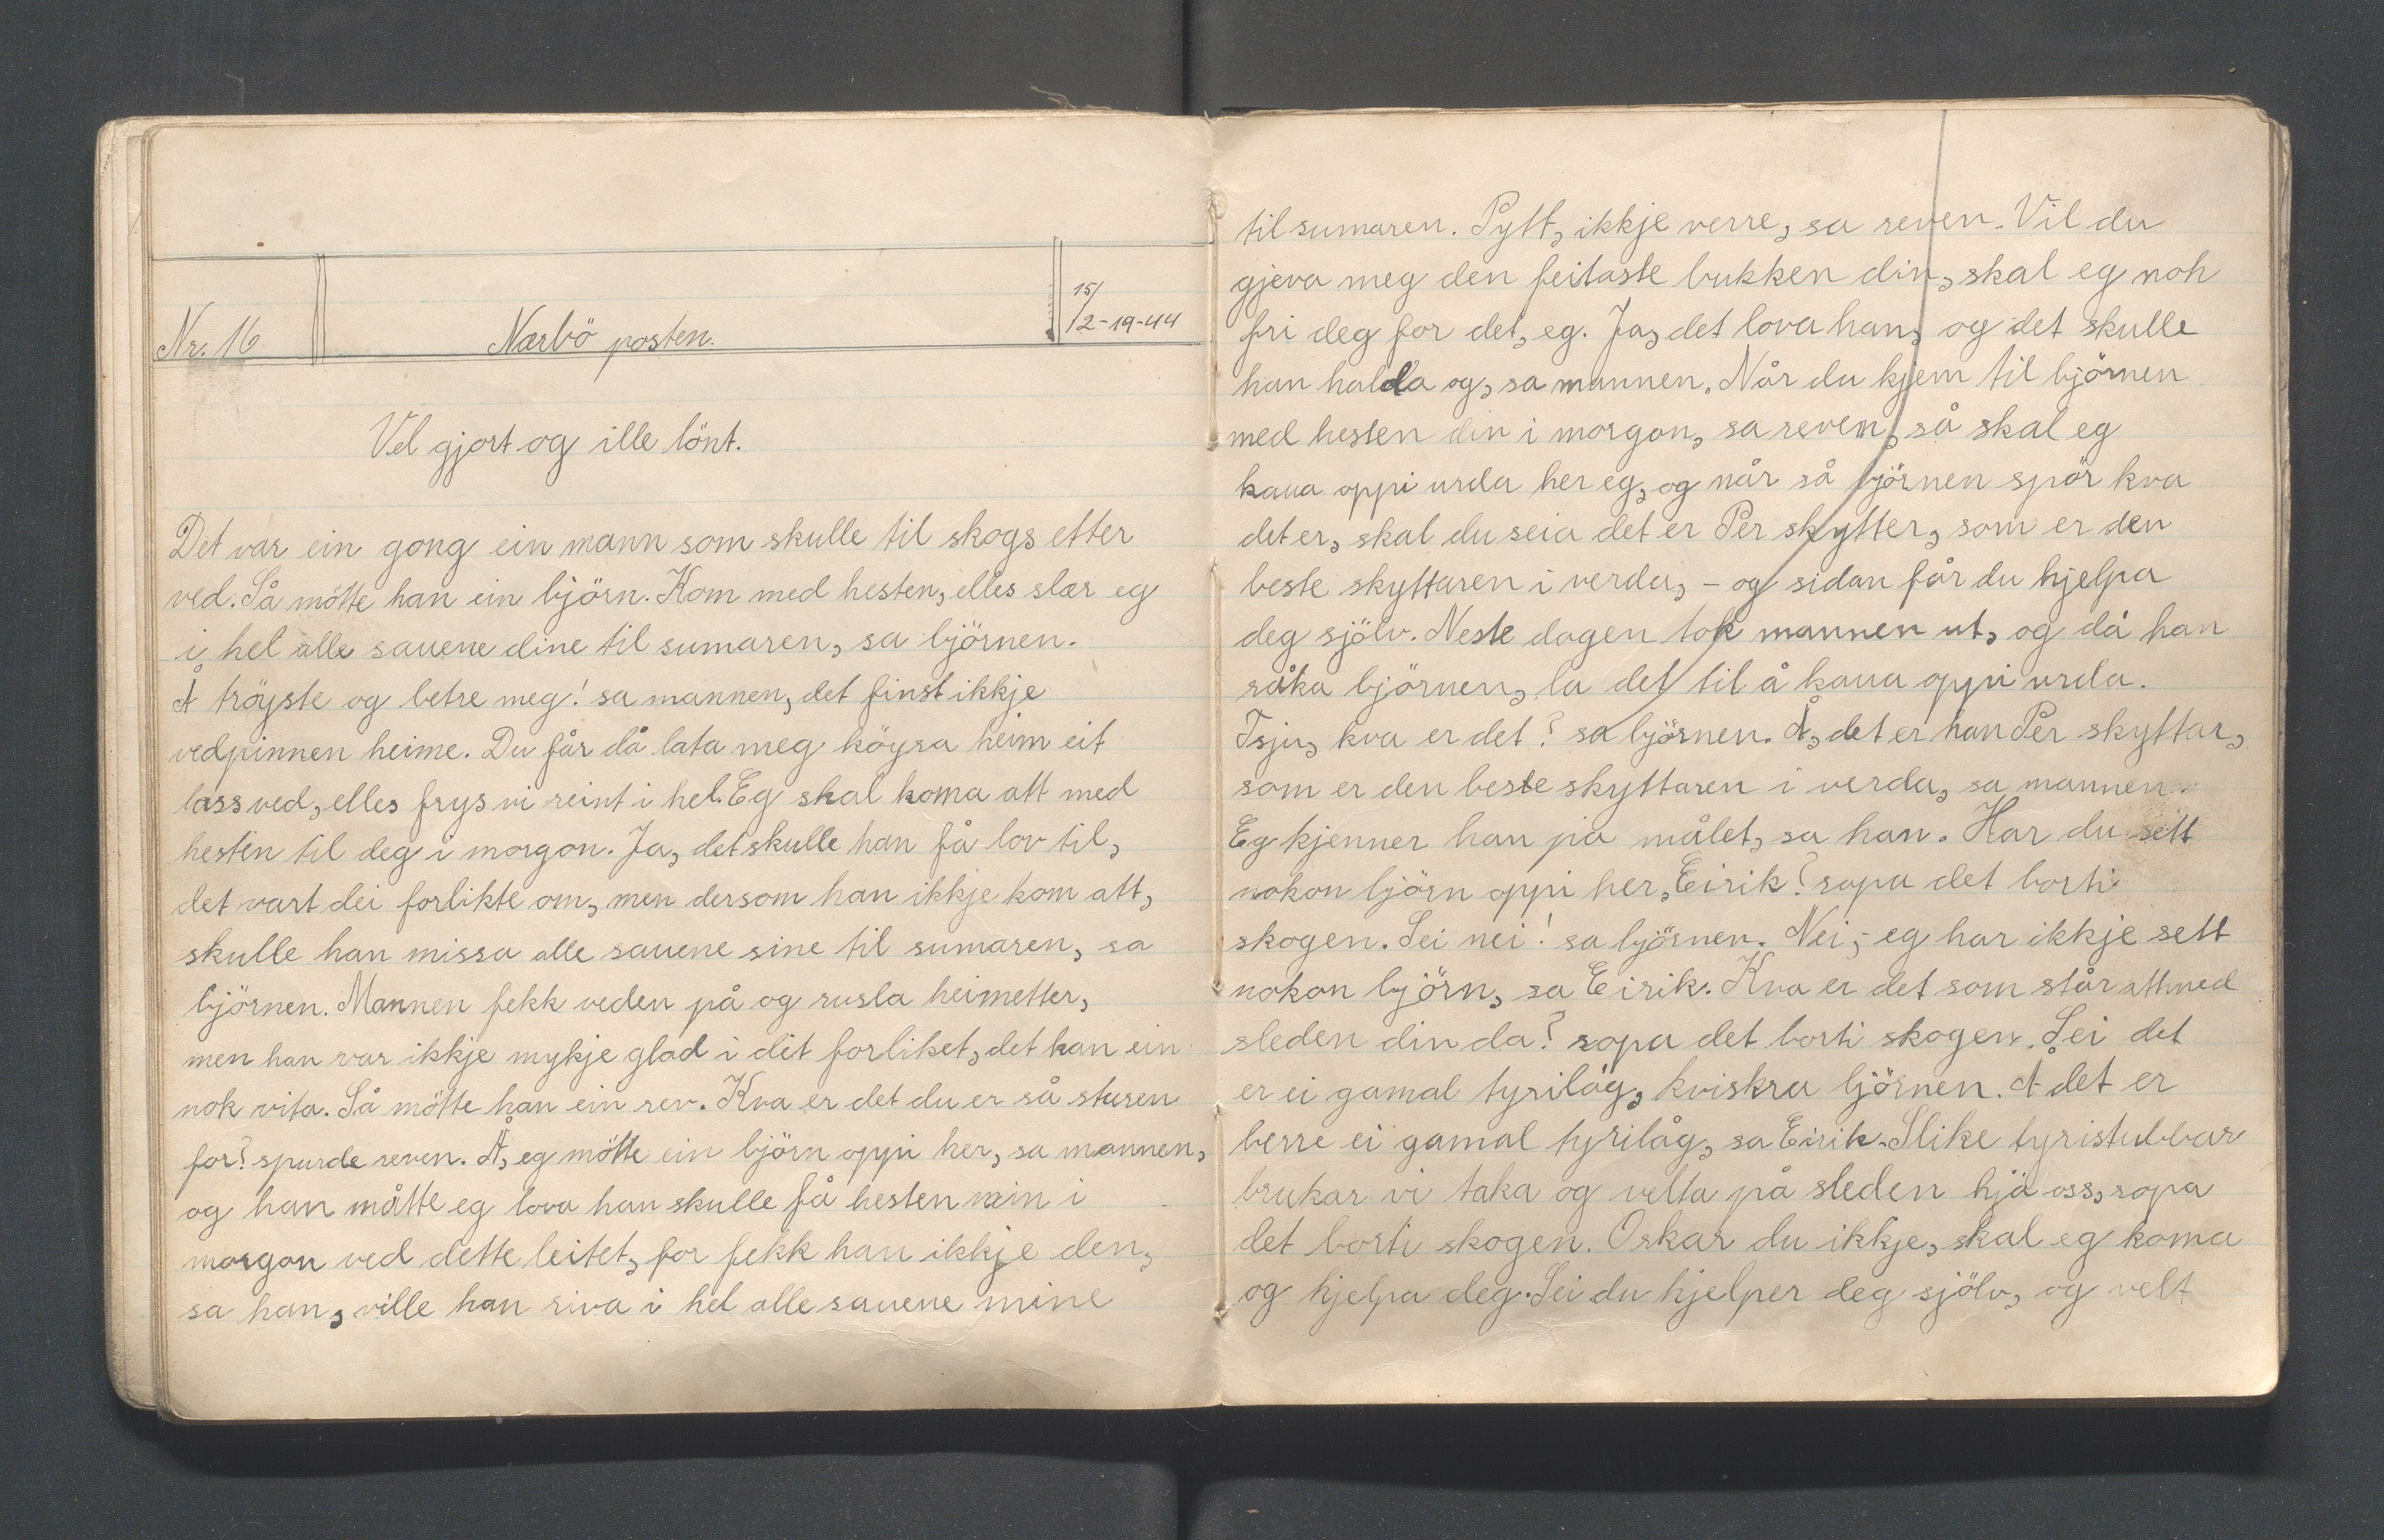 Nr. 16
Nærbö posten.
15/
2-19-44
Vel gjort og ille lönt.
Det var ein gong ein mann som skulle til skogs etter
ved. Så mötte han ein björn. Kom med hesten, elles slær eg
i hel alle sauene dine til sumaren, sa björnen.
Å tröyste og betre meg! sa mannen, det finst ikkje
vedpinnen heime. Du får då lata meg köyra heim eit
lass ved, elles frys vi reint i hel. Eg skal koma att med
hesten til deg i morgon. Ja, det skulle han få lov til,
det vart dei forlikte om, men dersom han ikkje kom att,
skulle han missa alle sauene sine til sumaren, sa
björnen. Mannen fekk veden på og rusla heimetter,
men han var ikkje mykje glad i det forliket, det kan ein
nok vita. Så mötte han ein rev. Kva er det du er så sturen
for? spurde reven. Å, eg mötte ein björn oppi her, sa mannen,
og han måtte eg lova han skulle få hesten min i
morgon ved dette leitet, for fekk han ikkje den,
sa han, ville han riva i hel alle sauene mine
til sumaren. Pytt, ikkje verre, sa reven. Vil du
gjeva meg den feitaste bukken din, skal eg noh
fri deg for det, eg. Ja, det lova han, og det skulle
han halda og, sa mannen. Når du kjem til björnen
med hesten din i morgon, sa reven, så skal eg
kaua oppi urda her eg, og når så björnen spör kva
det er, skal du seia det er Per skytter, som er den
beste skyttaren i verda, - og sidan får du hjelpa
deg sjölv. Neste dagen tok mannen ut, og då han
råka björnen, la det til å kaua oppi urda.
Tsju, kva er det? sa björnen. Å, det er han Per skyttar,
som er den beste skyttaren i verda, sa mannen.
Eg kjenner han på målet, sa han. Har du sett
nokon björn oppi her, Eirik? ropa det borti
skogen. Sei nei! sa björnen. Nei, - eg har ikkje sett
nokon björn, sa Eirik. Kva er det som står attmed
sleden din da? ropa det borti skogen. Sei det
er ei gamal tyrilåg, kviskra björnen. Å det er
berre ei gamal tyrilåg, sa Eirik. Slike tyristubbar
brukar vi taka og velta på sleden hjå oss, ropa
det borti skogen. Orkar du ikkje, skal eg koma
og hjelpa deg. Sei du hjelper deg sjölv, og velt